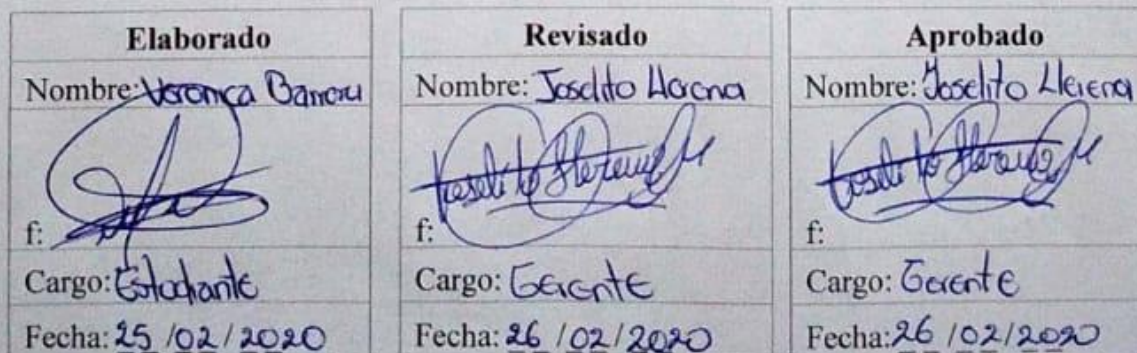 Elaborado
Nombre: Veronica Barreru
f:
Cargo: Estudiante
Fecha: 25 /02/2020
Revisado
Nombre: Joselito Llerena
f:
Cargo: Gerente
Fecha: 26 /02/2020
Aprobado
Nombre: Joselito Llerena
f:
Cargo: Gerente
Fecha: 26 /02/2020